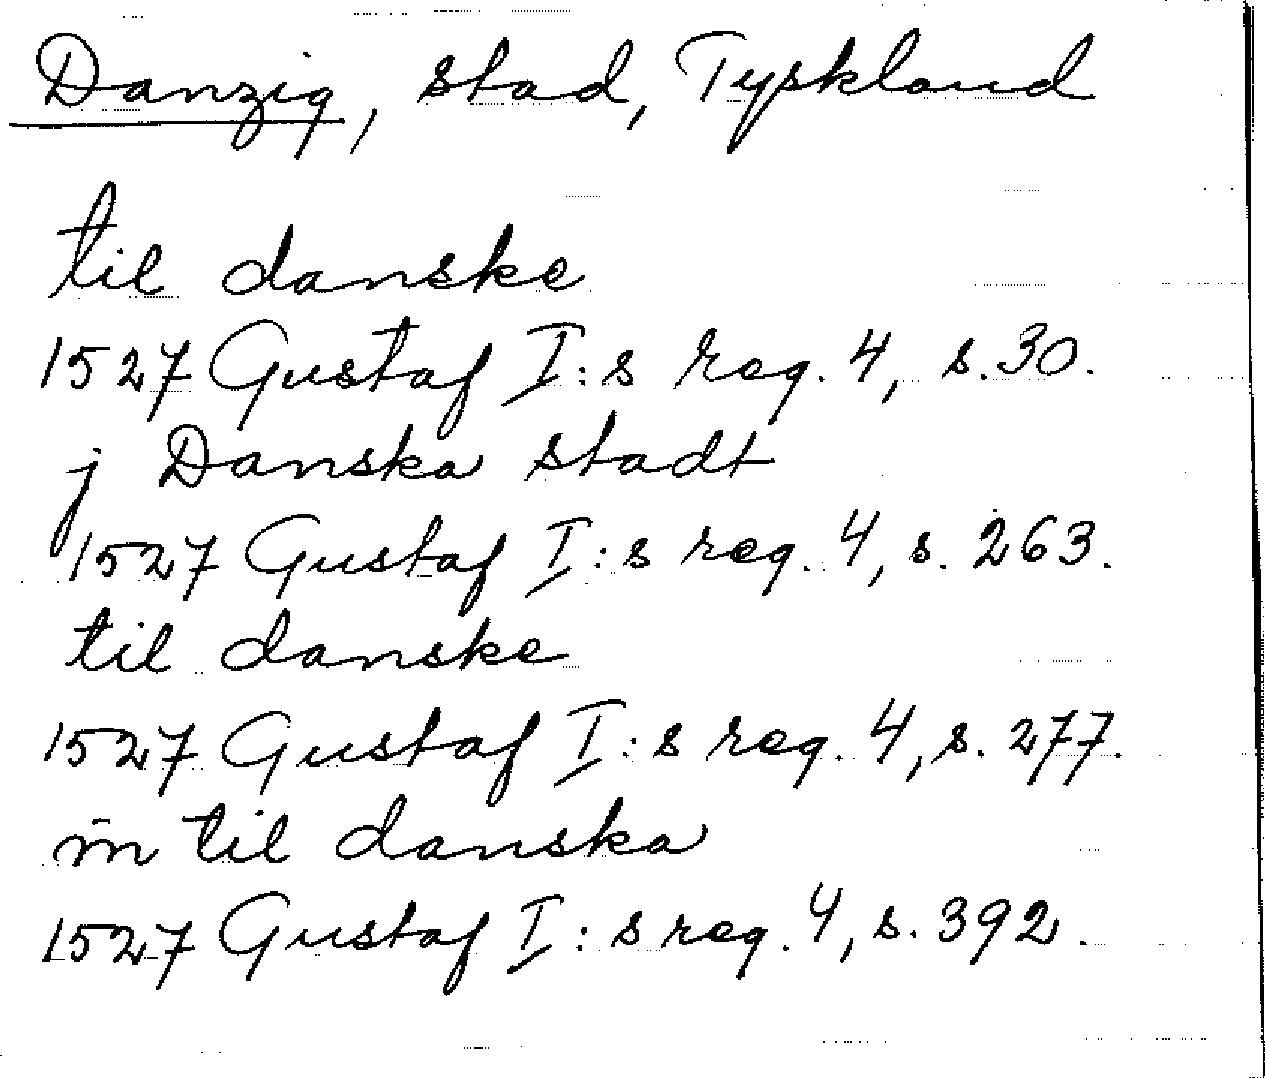 Danzig, stad, Tyskland
til danske
1527 Gustaf I:s reg. 4, s. 30.
j Danska stadt
1527 Gustaf I:s reg. 4, s. 263.
til danske
1527 Gustaf I:s reg. 4, s. 277.
m̄ til danska
1527 Gustaf I:s reg. 4, s. 392.